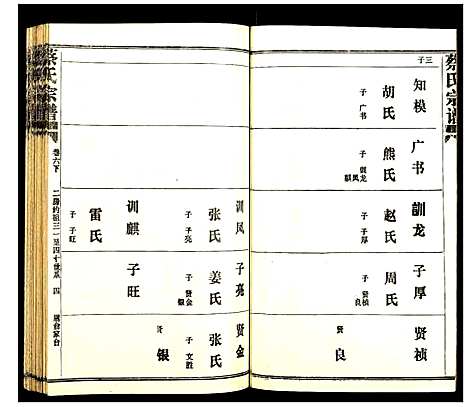 蔡氏宗谱
三子
知模
胡氏
子 广书
广书
熊氏
子 训龙 训凤 训麒
训龙
赵氏
子 子厚
子厚
周氏
子 贤桢 贤良
贤桢
贤良
训凤
张氏
子 子亮
训麒
雷氏
子 子旺
子亮
姜氏
子 贤金 贤银
子旺
贤金
张氏
子 文胜
贤银
蔡氏宗谱
卷六下
四